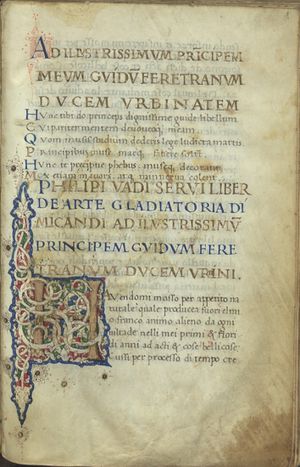 AD ILLVSTRISSIMVM PRICIPEM
MEVM GVIDV FERETRANVM
DVCEM VRBINATEM
HVnc tibi do princeps dignissime guide libellum
CVi pariter mentem deuoueoq; meam
QVom musę studium dederis lege ludicra martis
PRincipibus musę
HVnc te precipue phebus museq; decorant
PHILIPI VADI SERVI LIBER
DE ARTE GLADIATORIA DI
MICANDI AD ILVSTRISSIMV̄
PRINCIPEM GVIDVM FERE
TRANVM DVCEM VRBINI.
HAuendomi mosso per appetito na
turale quale producea fuori el mi
o franco animo alieno da ogni
uiltade nelli mei primi & flori
di anni ad acti & cose bellicose
Cussi per processo di tempo cre